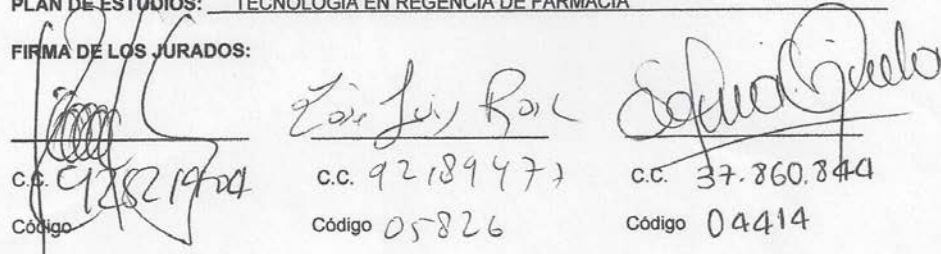 PLAN DE ESTUDIOS: TECNOLOGÍA EN REGENCIA DE FARMACIA
FIRMA DE LOS JURADOS:
José Luis
C.C. C.C. 92189477 C.C. 37.860.844
Código Código 05826 Código 04414